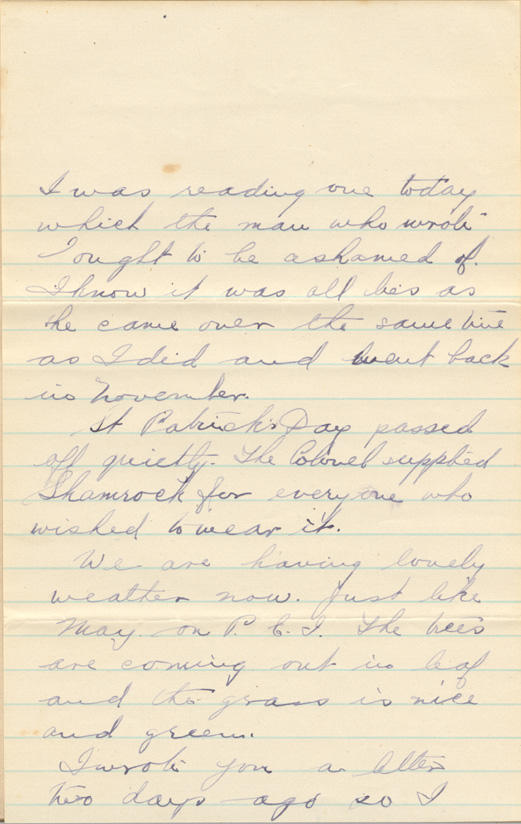 I was reading one today
which the man who wrote
ought to be ashamed of.
I know it was all lies as
he came over the same time
as I did and went back
in November.
St Patrick's Day passed
off quietly. The Colonel supplied
Shamrock for everyone who
wished to wear it.
We are having lovely
weather now. Just like
May on P. E. I. The trees
are coming out in leaf
and the grass is nice
and green.
I wrote you a letter
two days ago so I